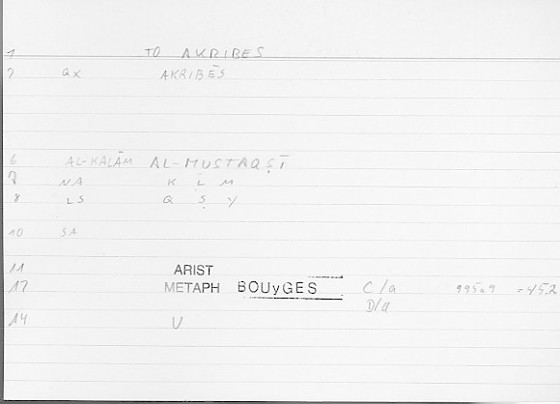 1 TO AKRIBES
2 QX AKRIBĒS
6 AL-KALĀM AL-MUSTAQṢĪ
7 NA K L M
8 LS Q Ṣ Y
10 SA
11 ARIST
12 METAPH BOUyGES C/a 995a9 =45.2
D/a
14 V